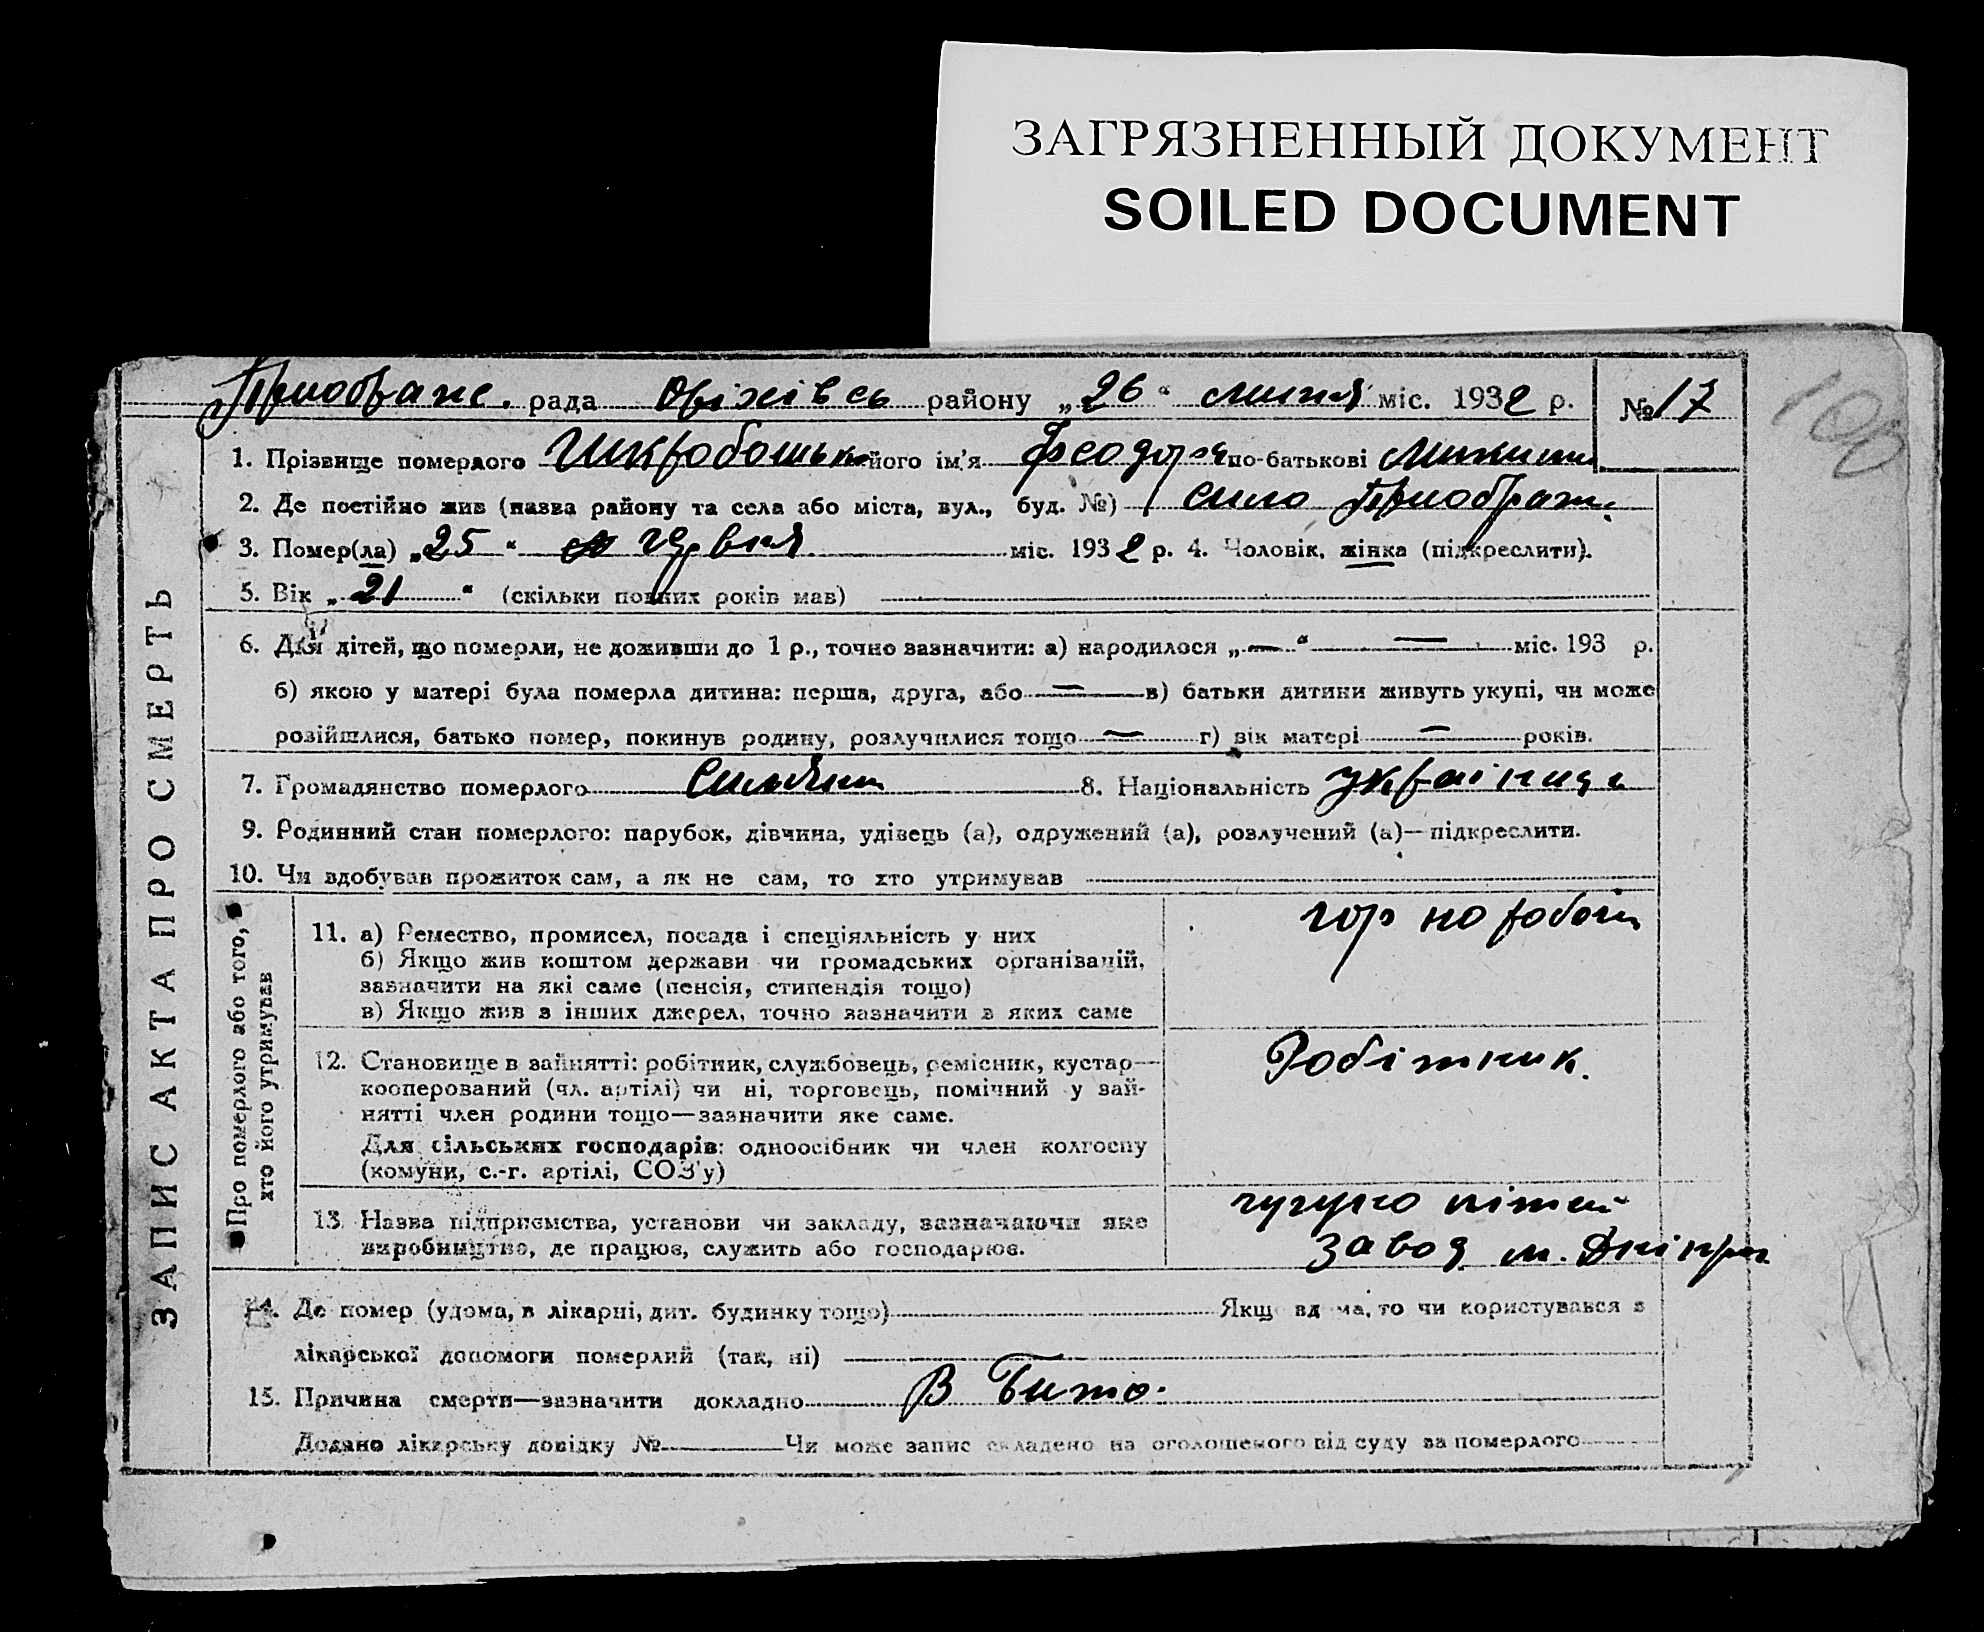 ЗАГРЯЗНЕННЫЙ ДОКУМЕНТ
SOILED DOCUMENT
рада Оріхівсь району „26“ липня міс. 1932 р. № 17
100
1. Прізвище померлого його ім'я Феодора по-батькові
2. Де постійно жив (назва району та села або міста, вул., буд. №) село Приображ.
3. Помер(ла) „25“ червня міс. 1932 р. 4. Чоловік, жінка (підкреслити).
5. Вік „21“ (скільки повних років мав)
6. Для дітей, що померли, не доживши до 1 р., точно зазначити: а) народилося „—“ — міс. 193 р.
б) якою у матері була померла дитина: перша, друга, або — в) батьки дитини живуть укупі, чи може
розійшлися, батько помер, покинув родину, розлучилися тощо — г) вік матері — років.
7. Громадянство померлого 8. Національність українка
9. Родинний стан померлого: парубок, дівчина, удівець (а), одружений (а), розлучений (а)—підкреслити.
10. Чи здобував прожиток сам, а як не сам, то хто утримував
ЗАПИС АКТА ПРО СМЕРТЬ
Про померлого або того,
хто його утримував
11. а) Ремество, промисел, посада і спеціяльність у них
б) Якщо жив коштом держави чи громадських організацій,
зазначити на які саме (пенсія, стипендія тощо)
в) Якщо жив з інших джерел, точно зазначити з яких саме
чор на роботі
12. Становище в зайнятті: робітник, службовець, ремісник, кустар—
кооперований (чл. артілі) чи ні, торговець, помічний у зай-
нятті член родини тощо—зазначити яке саме.
Для сільських господарів: одноосібник чи член колгоспу
(комуни, с.-г. артілі, СОЗ'у)
Робітник.
13. Назва підприємства, установи чи закладу, зазначаючи яке
виробництво, де працює, служить або господарює.
чугуно
завод м. Дніпро
14. Де помер (удома, в лікарні, дит. будинку тощо) Якщо вдома, то чи користувався з
лікарської допомоги померлий (так, ні)
15. Причина смерти—зазначити докладно В Бито.
Додано лікарську довідку № Чи може запис складено на оголошеного від суду за померлого